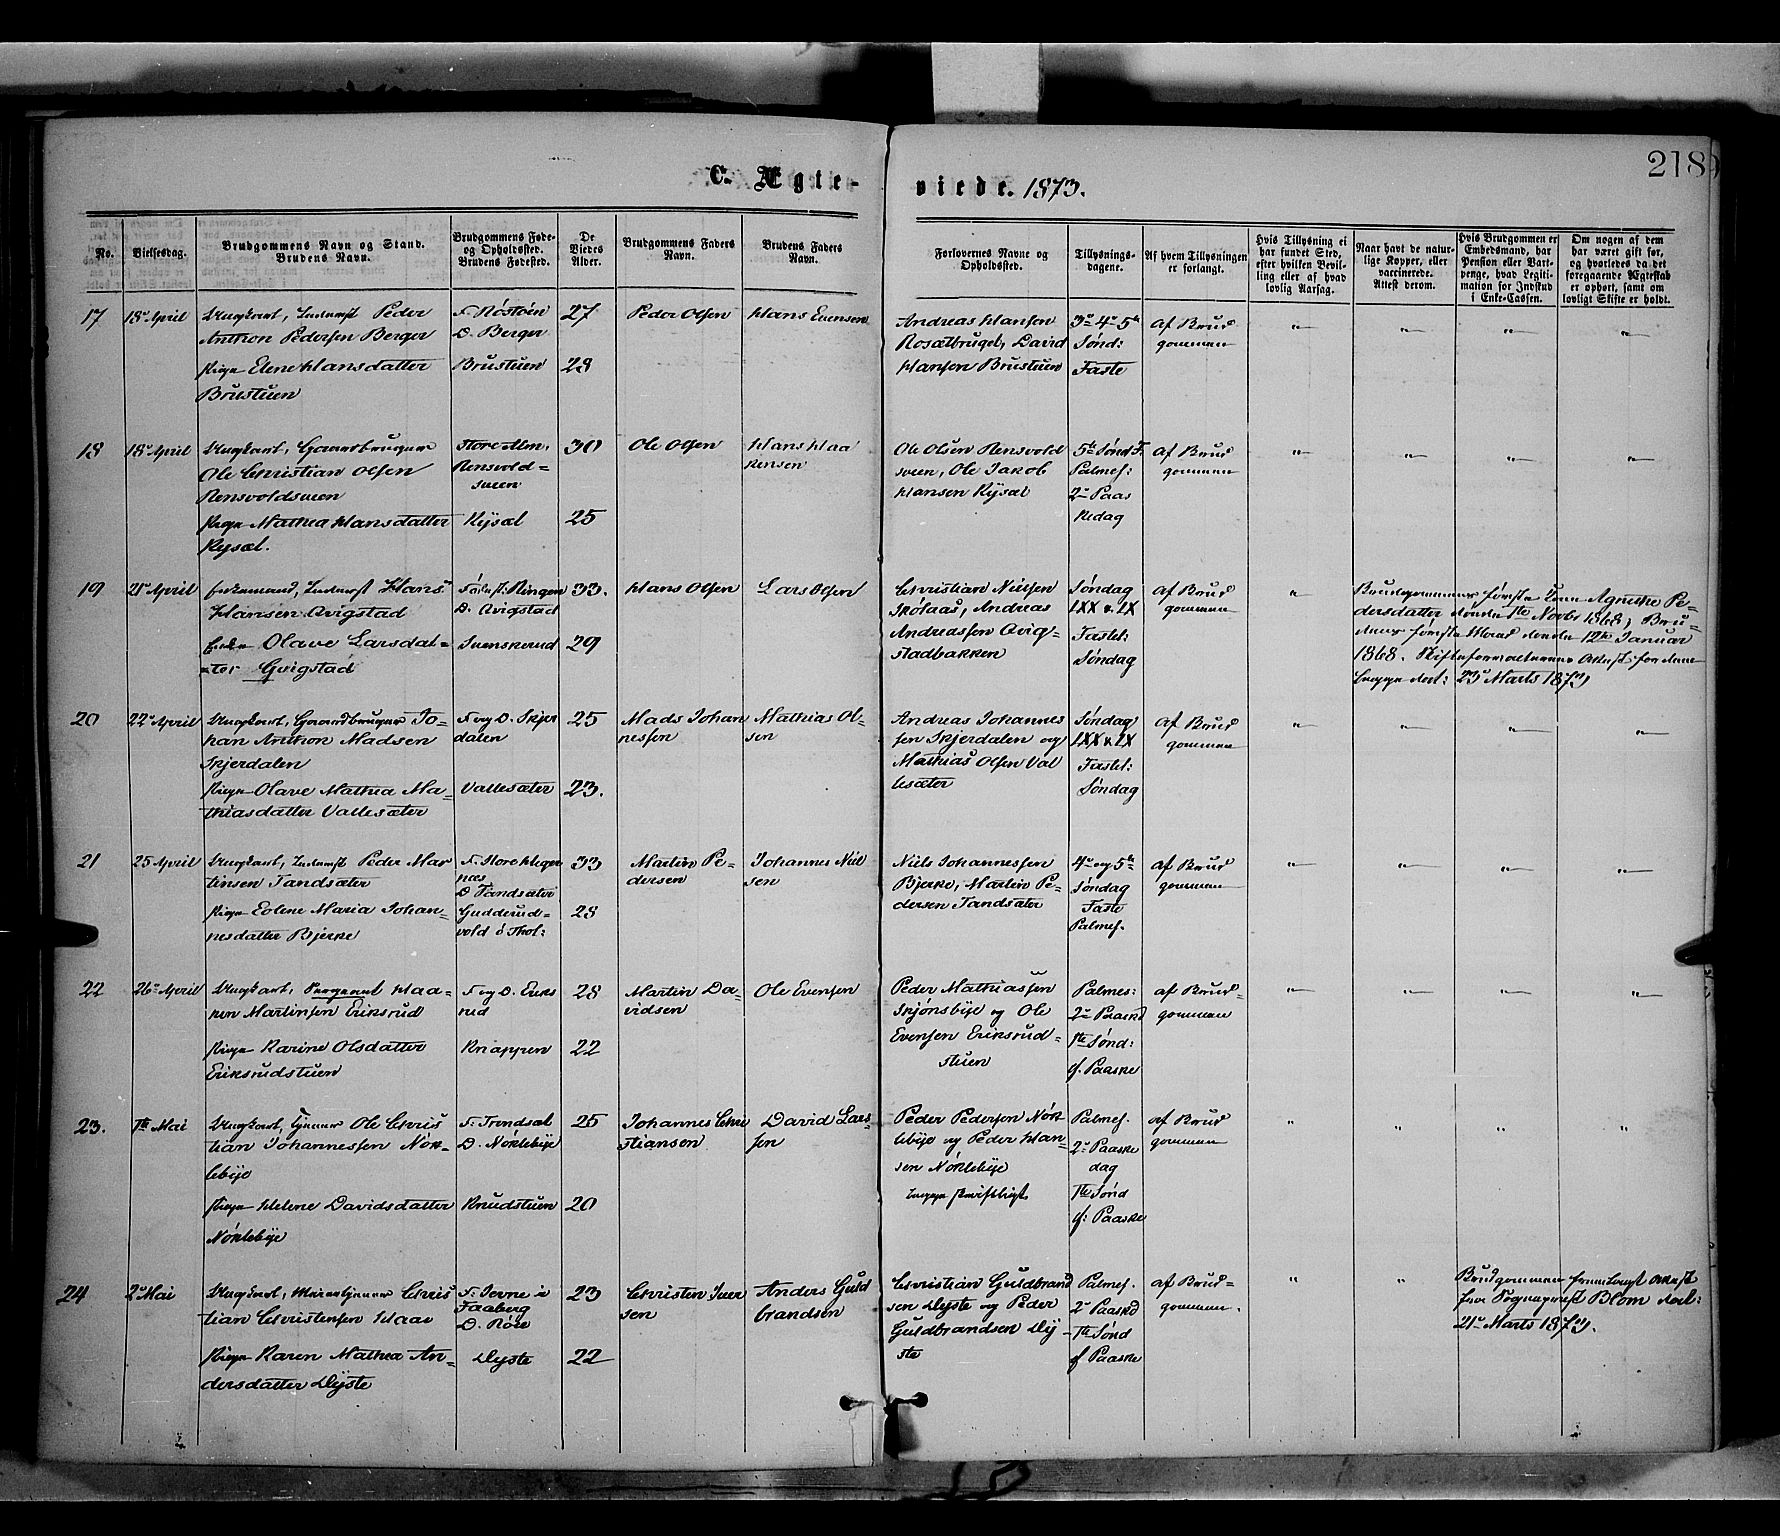 218
C. Ægte-
viede. 1873.
No.
Vielsesdag.
Brudgommens Navn og Stand.
Brudens Navn.
Brudgommens Føde-
og Opholdssted.
Brudens Fødested.
De
Viedes
Alder.
Brudgommens Faders
Navn.
Brudens Faders
Navn.
Forlovernes Navne og
Opholdssted.
Tillysnings-
dagene.
Af hvem Tillysningen
er forlangt.
Hvis Tillysning ei
har fundet Sted,
efter hvilken Bevil-
ling eller af hvad
lovlig Aarsag.
Naar havt de natur-
lige Kopper, eller
vaccinerede.
Attest derom.
Hvis Brudgommen er
Embedsmand, har
Pension eller Vart-
penge, hvad Legiti-
mation for Indskud
i Enke-Cassen.
Om nogen af dem
har været gift før,
og hvorledes da det
foregaaende Ægteskab
er ophørt, samt om
lovligt Skifte er holdt.
17
18 April
Ungkarl, Inderst Peder
Anthon Pedersen Berger
Pige Elene Hansdatter
Brustuen
F. Röstöen
O. Berger
Brustuen
27
28
Peder Olsen
Hans Evensen
Andreas Hansen
Rosætbruget, David
Hansen Brustuen
3die 4de 5te
Sönd:
Faste
af Brud
gommen
18
18 April
Ungkarl, Gaardbruger
Ole Christian Olsen
Rensvoldsveen
Pige Mathea Hansdatter
Kysæl.
Store Alm.
Rensvold=
sveen
Kysæl
30
25
Ole Olsen
Hans Haa
kensen
Ole Olsen Rensvold
sveen, Ole Jakob
Hansen Kysæl
5te Sönd F.
Palmes:
2den Paas
kedag
af Brud
gommen
19
21 April
Enkemand, Inderst Hans
Hansen Qvigstad
Enke Olave Larsdat-
ter Qvigstad
O. Qvigstad
Svenskerud
33.
29
Hans Olsen
Lars Olsen
Christian Nilsen
Skolaas, Andreas
Andreassen Qvig-
stadbakken
Söndag
LXX & LX
Fastel:
Söndag
af Brud
gommen
Brudgommens förste Kone Agnethe Pe-
dersdatter döde 1ste Novbr 1868, Bru-
dens förste Mand döde 12te Januar
1868. Skifteforvalterens Attest for dem
begge dat: 23 Marts 1873
20
22 April
Ungkarl, Gaardbruger Jo-
han Anthon Madsen
Skjerdalen
Pige Olave Mathea Ma-
thiasdatter Vallesæter
F. og O. Skjer
dalen
Vallesæter
25
23.
Mads Johan
nessen
Mathias Ol-
sen
Andreas Johannes
sen Skjerdalen og
Mathias Olsen Val
lesæter
Söndag
LXX & LX
Fastel:
Söndag
af Brud
gommen
21
25 April
Ungkarl, Inderst Peder Mar
tinsen Tandsæter
Pige Eolene Maria Johan-
nesdatter Bjerke
F. Store Heger
næs
O. Tandsæter
Gudderud-
vold i Thot:
33
28
Martin Pe-
dersen
Johannes Niel
sen
Niels Johannessen
Bjerke, Martin Pe-
dersen Tandsæter
4de og 5te
Söndag
Faste
Palmes.
af Brud
gommen
22
26 April
Ungkarl, Sergeant Haa-
ken Martinsen Eriksrud
Pige Karine Olsdatter
Eriksrudstuen
F. og O. Eriks
rud
Knappen
28
22
Martin Da-
vidsen
Ole Evensen
Peder Mathiassen
Skjönsbye og Ole
Evensen Eriksrud-
stuen
Palmes:
2den Paaskd
1ste Sönd:
e/. Paaske
af Brud=
gommen
23.
1ste Mai
Ungkarl, Tjener Ole Chris
tian Johannessen Nök-
lebye
Pige Helene Davidsdatter
Nöklebye
F. Trondsæt
O. Nöklebye
Knudstuen
25
20
Johannes Chri
stiansen
David Lars
sen
Peder Pedersen Nök
lebye og Peder Han-
sen Nöklebye
begge skriftligt
Palmes.
2den Paaske
dag
1ste Sönd
e/: Paaske
af Brud
gommen
24
2den Mai
Ungkarl, Chris
tian Christensen Haav
Pige Karen Mathea An-
dersdatter Dyste
F. Jevne i
Faaberg
O. Röise
Dyste
23
22
Christen Iver
sen
Anders Guld
brandsen
Christian Guldbrand
sen Dyste og Peder
Guldbrandsen Dy-
ste
Palmes.
2den Paaskd
1ste Sönd
e/ Paaske
af Brud=
gommen.
Brudgommen fremlagt Attest
fra Sogneprest Blom dat:
21de Marts 1873.